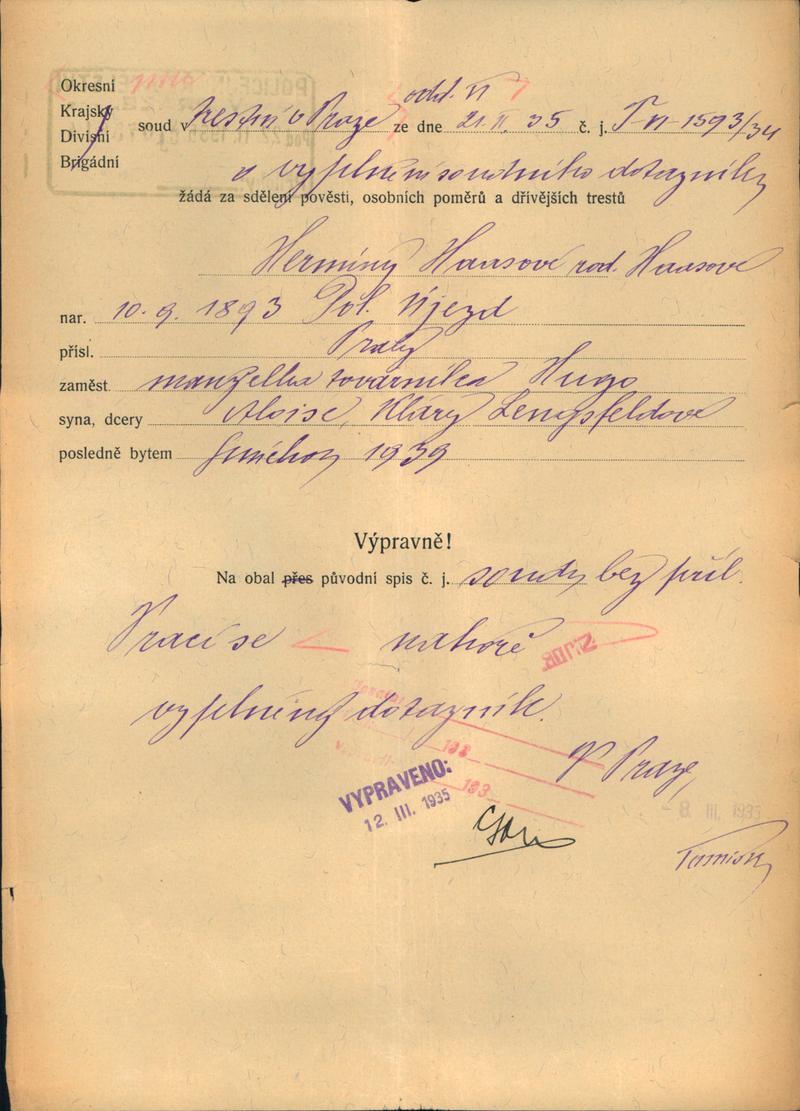 Okresní
Krajský
Divisní
Brigádní
odd. VI
soud v trestní v Praze ze dne 21. II. 35 č. j. T VI 1593/34
o vyplnění soudního dotazníku
žádá za sdělení pověsti, osobních poměrů a dřívějších trestů
Hermíny Haasové roz. Haasové
nar. 10. 9. 1893 Pol. Újezd
přísl. Prahy
zaměst. manželka továrníka Hugo
syna, dcery Aloise, Kláry Lengsfeldové
posledně bytem Smíchov 1939
Výpravně!
Na obal přes původní spis č. j. soudu bez příl.
Vrací se nahoře
vyplněný dotazník.
V Praze,
VYPRAVENO:
12. III. 1935
- 8. III. 1935